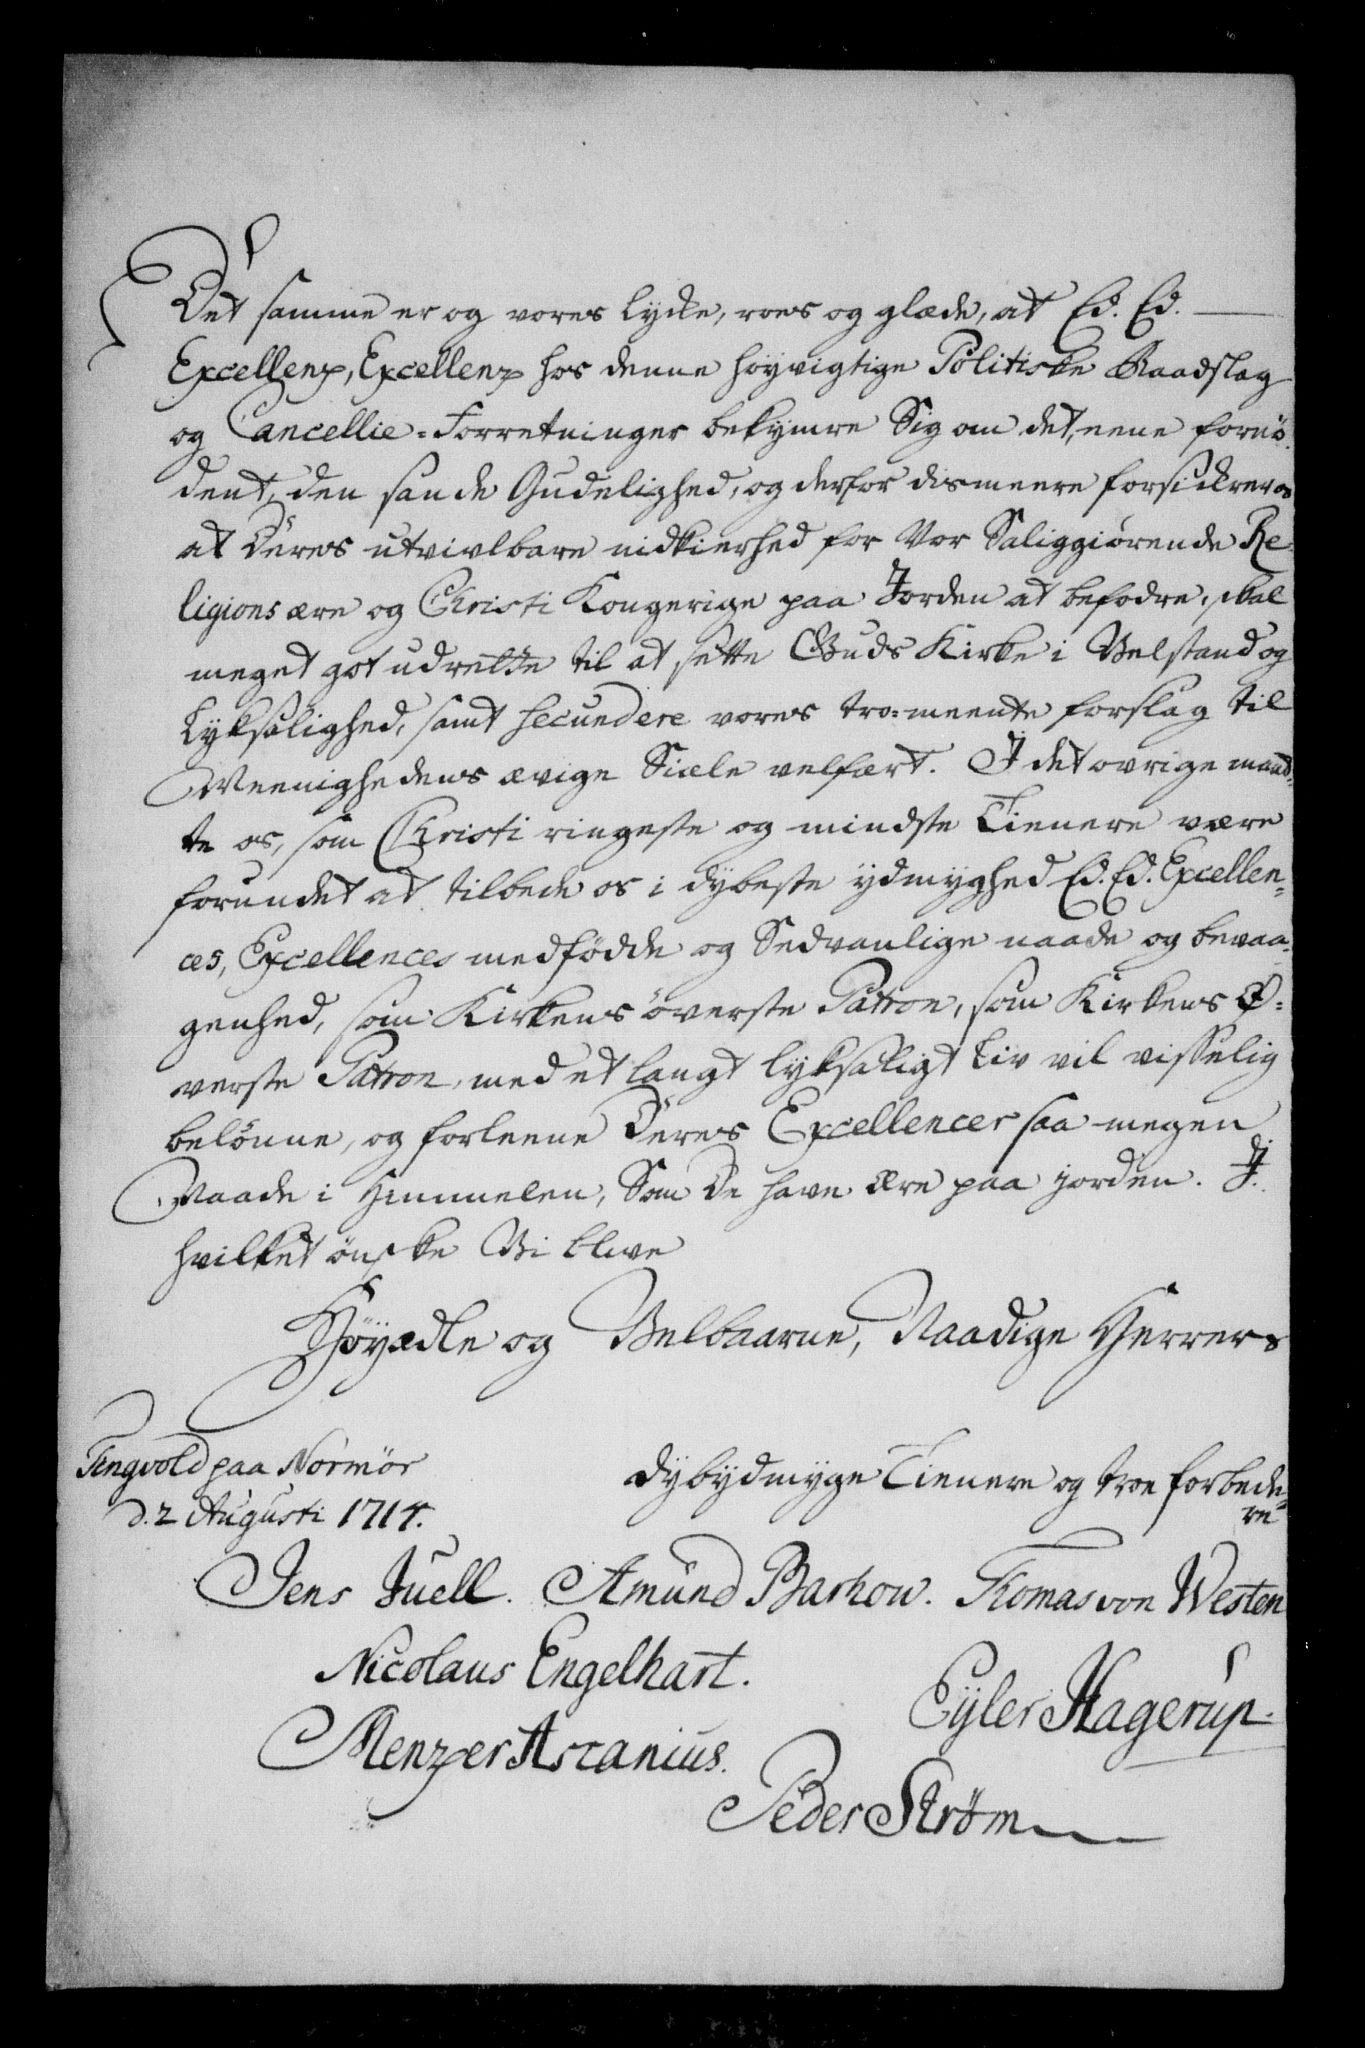 Det samme er og vores lycke, roes og glæde, at Ed. Ed.
Excellenz, Excellenz hos denne høyvigtige Politiske Raadslag
og Cancellie-Forretninger bekymre Sig om det, eene fornø-
dent, den sande Gudelighed, og derfor dismeere forsickrer os
at Deres utvivlbare nidkierhed for Vor Saliggiørende Re-
ligions ære og Christi Kongerige paa Jorden at befodre, skal
meget got udrette til at sette Guds Kirke i Velstand og
Lyksalighed, samt secundere vores tro-meente forslag til
Meenighedens ævige Siæle velfært. I det ovrige maatt-
te os, som Christi ringeste og mindste Tienere være
forundet at tilbede os i dybeste ydmyghed Ed. Ed. Excellen-
ces, Excellences medfødde og Sedvanlige naade og bevaa-
genhed, som Kirkens överste Patron, som Kirkens Ø-
verste Patron, med et langt lyksaligt Liv vil visselig
belønne, og forleene Deres Excellencer saa megen
Naade i Himmelen, Som De have Ære paa jorden. J.
hvilket ønske Vi blive
Høyædle og Velbaarne, Naadige Herrers
Tingvold paa Normör
d. 2 Augusti 1714.
dybydmyge Tienere og troe forbede-
re
Jens Juell. Amund Barhow. Thomas von Westen
Nicolaus Engelhart.
Eyler Hagerup.
Menzer Ascanius.
Peder Strøm